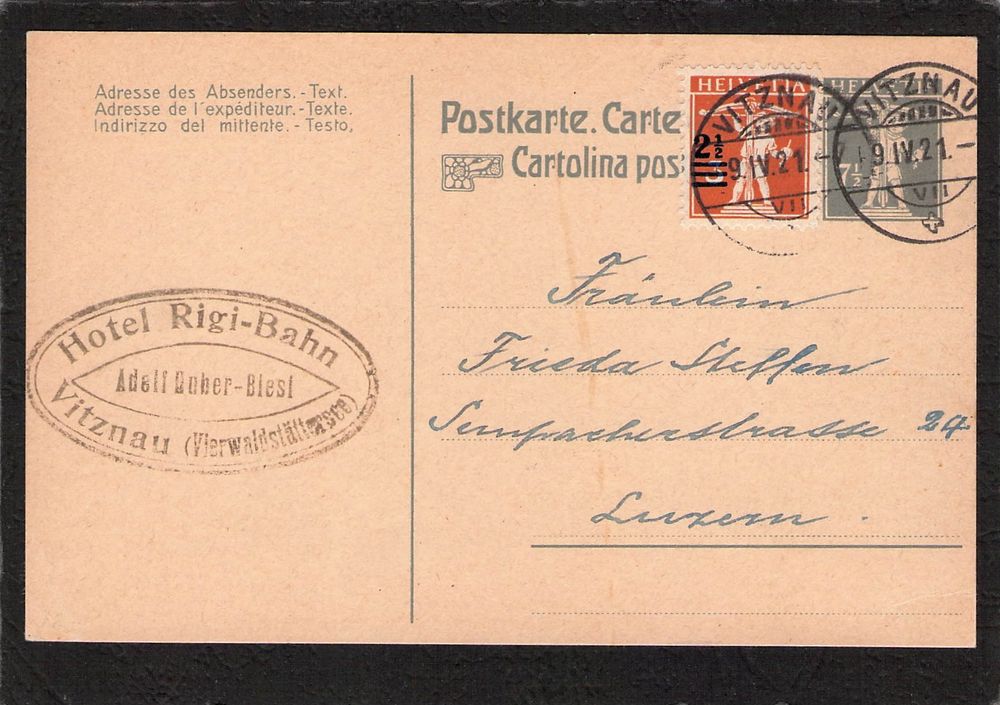 Adresse des Absenders.-Text.
Adresse de l'expéditeur.-Texte.
Indirizzo del mittente.-Testo,
Postkarte. Carte
Cartolina pos
HELVETIA
2½
HELVETIA
7½
VITZNAU
9.IV.21.-7
VII
VITZNAU
9.IV.21.-
VII
Hotel Rigi-Bahn
Adolf Huber-Blesi
Vitznau (Vierwaldstättersee)
Fräulein
Frieda Steffen
Sempacherstrasse 24
Luzern.